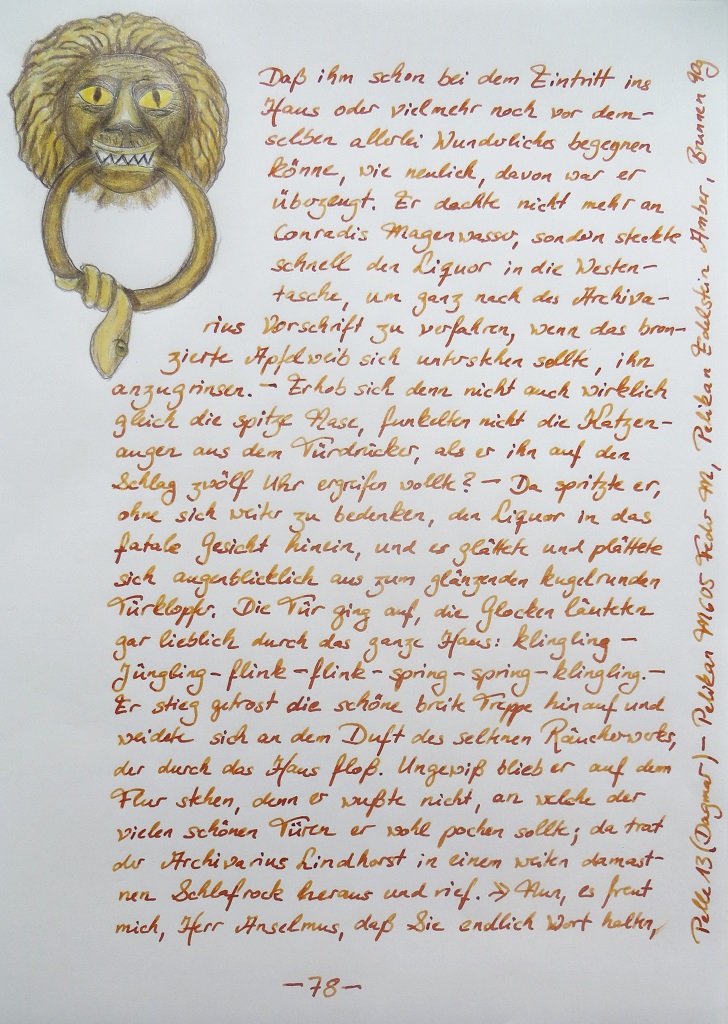 Daß ihm schon bei dem Eintritt ins
Haus oder vielmehr noch vor dem-
selben allerlei Wunderliches begegnen
könne, wie neulich, davon war er
überzeugt. Er dachte nicht mehr an
Conradis Magenwasser, sondern steckte
schnell den Liquor in die Westen-
tasche, um ganz nach des Archiva-
rius Vorschrift zu verfahren, wenn das bron-
zierte Apfelweib sich unterstehen sollte, ihn
anzugrinsen. – Erhob sich denn nicht auch wirklich
gleich die spitze Nase, funkelten nicht die Katzen-
augen aus dem Türdrücker, als er ihn auf den
Schlag zwölf Uhr ergreifen wollte? – Da spritzte er,
ohne sich weiter zu bedenken, den Liquor in das
fatale Gesicht hinein, und es glättete und plättete
sich augenblicklich aus zum glänzenden kugelrunden
Türklopfer. Die Tür ging auf, die Glocken läuteten
gar lieblich durch das ganze Haus: klingling –
Jüngling – flink – flink – spring – spring – klingling. –
Er stieg getrost die schöne breite Treppe hinauf und
weidete sich an dem Duft des seltenen Räucherwerks,
der durch das Haus floß. Ungewiß blieb er auf dem
Flur stehen, denn er wußte nicht, an welche der
vielen schönen Türen er wohl pochen sollte; da trat
der Archivarius Lindhorst in einem weiten damast-
nen Schlafrock heraus und rief: » Nun, es freut
mich, Herr Anselmus, daß Sie endlich Wort halten,
– 78 –
Pelle 13 (Dagmar) – Pelikan M605 Feder M, Pelikan Edelstein Amber, Brunnen 90g